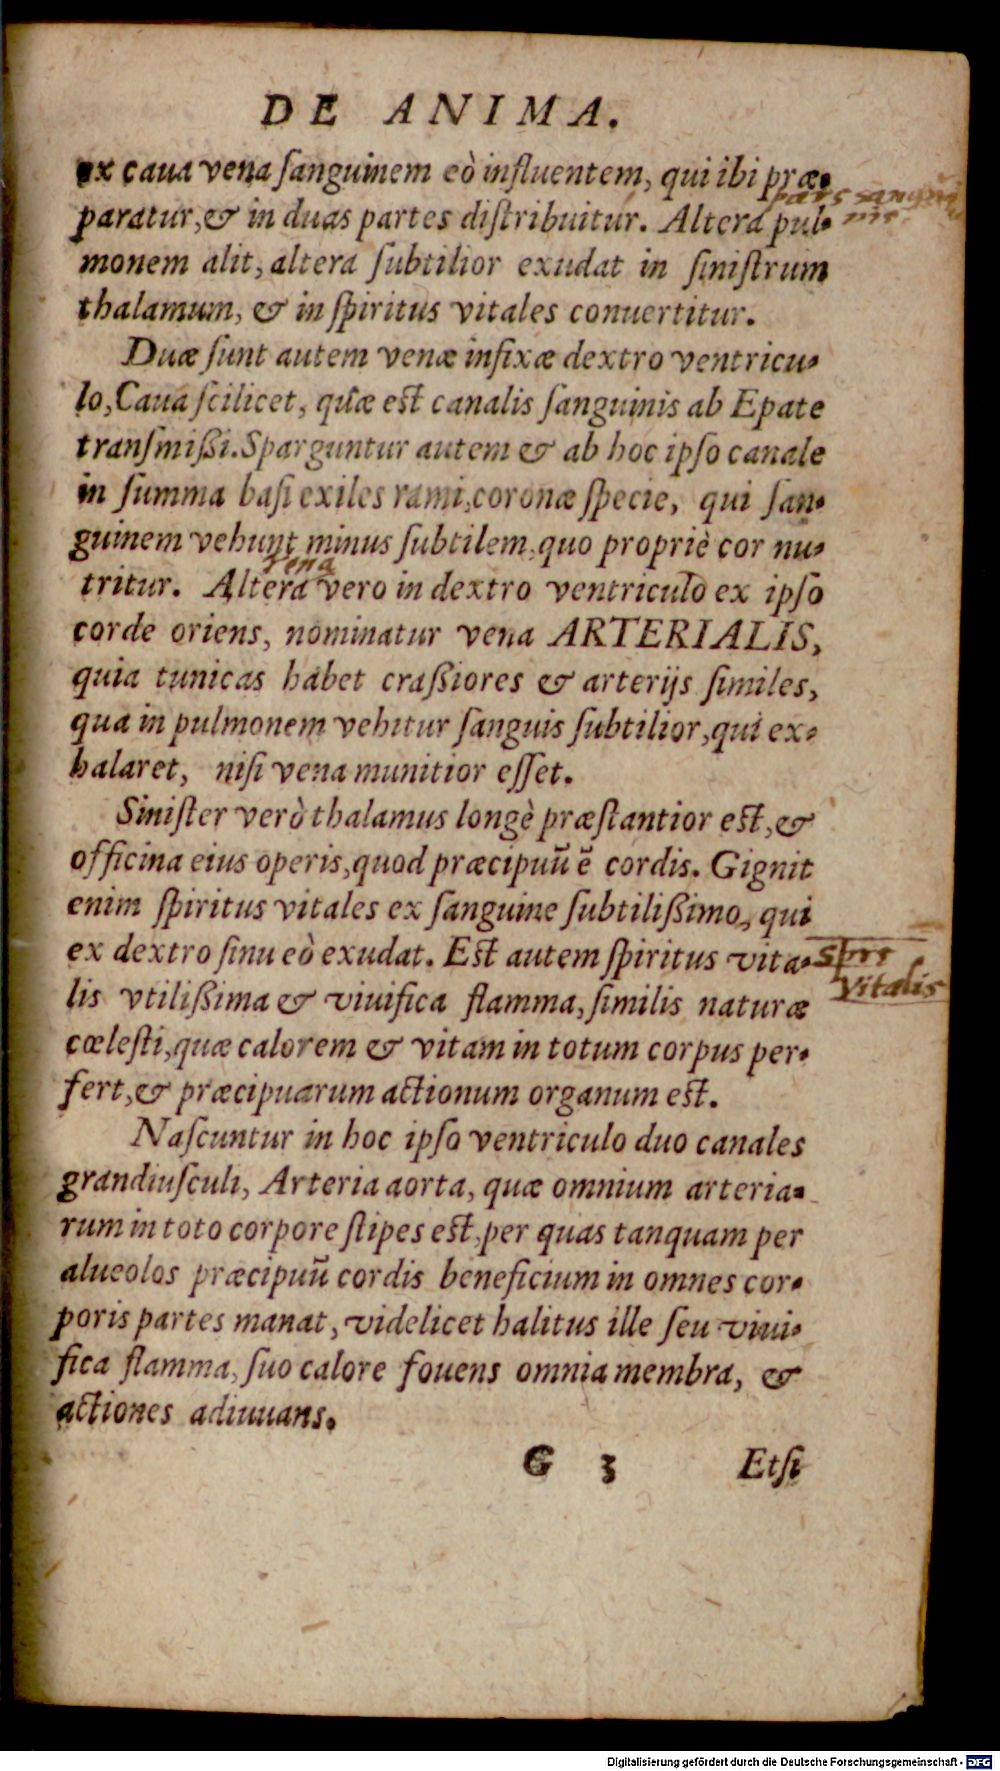 DE ANIMA.
ex caua vena ſanguinem eò influentem, qui ibi præ-
pars sangui
nis
paratur, & in duas partes diſtribuitur. Altera pul-
monem alit, altera ſubtilior exudat in ſiniſtrum
thalamum, & in ſpiritus vitales conuertitur.
Duæ ſunt autem venæ infixæ dextro ventricu-
lo, Caua ſcilicet, quæ est canalis ſanguinis ab Epate
tranſmißi. Sparguntur autem & ab hoc ipſo canale
in ſumma baſi exiles rami, coronæ ſpecie, qui ſan-
guinem vehunt minus ſubtilem, quo propriè cor nu-
vena
tritur. Altera vero in dextro ventriculo ex ipſo
corde oriens, nominatur vena ARTERIALIS,
quia tunicas habet craßiores & arterijs ſimiles,
qua in pulmonem vehitur ſanguis ſubtilior, qui ex-
halaret, niſi vena munitior eſſet.
Siniſter verò thalamus longè præſtantior est, &
officina eius operis, quod præcipuũ ẽ cordis. Gignit
enim ſpiritus vitales ex ſanguine ſubtilißimo, qui
ex dextro ſinu eò exudat. Est autem ſpiritus vita-
spūs
Vitalis
lis vtilißima & viuifica flamma, ſimilis naturæ
cœleſti, quæ calorem & vitam in totum corpus per-
fert, & præcipuarum actionum organum est.
Naſcuntur in hoc ipſo ventriculo duo canales
grandiuſculi, Arteria aorta, quæ omnium arteria-
rum in toto corpore ſtipes est, per quas tanquam per
alueolos præcipuũ cordis beneficium in omnes cor-
poris partes manat, videlicet halitus ille ſeu viui-
fica flamma, ſuo calore fouens omnia membra, &
actiones adiuuans.
G 3 Etſi
Digitalisierung gefördert durch die Deutsche Forschungsgemeinschaft - DFG